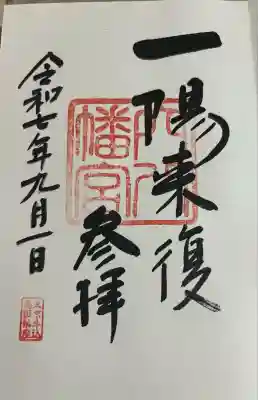 一陽来復
参拝
令和七年九月一日
八幡宮